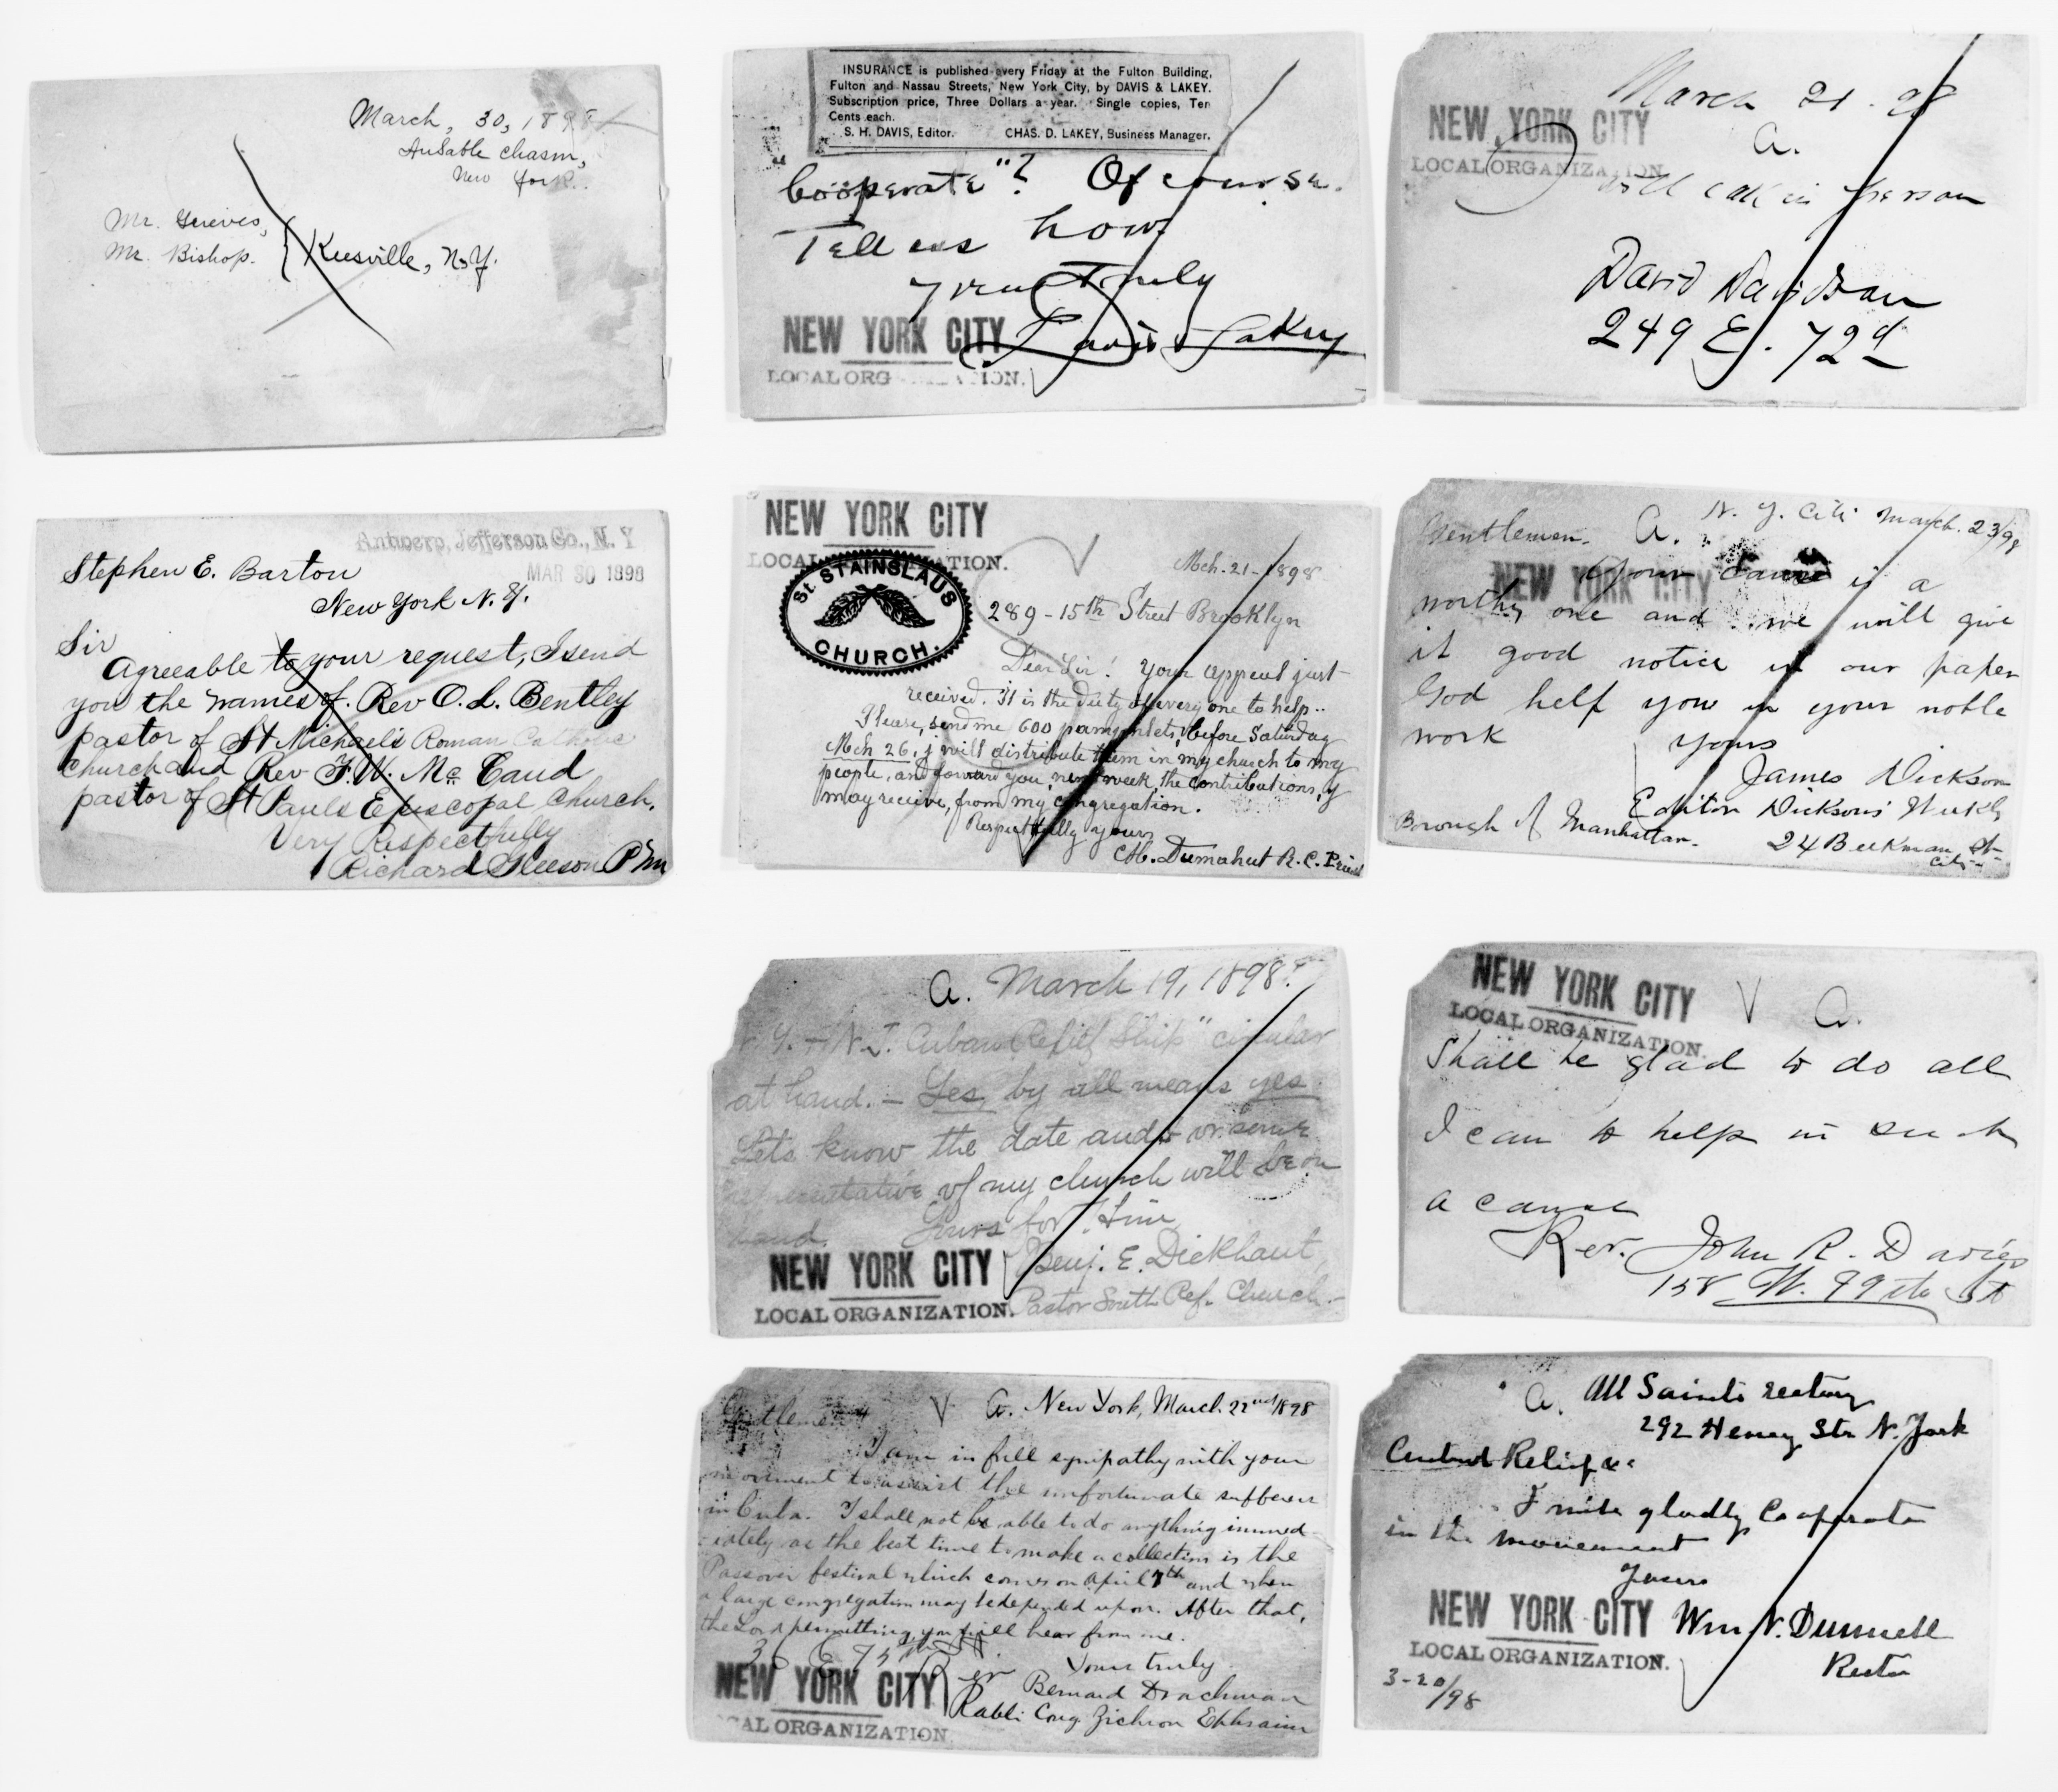 March, 30, 1898
AuSable Chasm,
New York.
Mr. Grieves,
Mr. Bishop.
Keesville, N.Y.
Antwerp, Jefferson Co., N. Y
MAR 30 1898
Stephen E. Barton
New York N. Y.
Sir
Agreeable to your request, I send
you the names of. Rev O. L. Bentley
pastor of St Michael's Roman Catholic
Church and Rev F. W. Mc Caud
pastor of St Pauls Episcopal Church.
Very Respectfully
Richard Gleeson P M
INSURANCE is published every Friday at the Fulton Building,
Fulton and Nassau Streets, New York City, by DAVIS & LAKEY.
Subscription price, Three Dollars a year. Single copies, Ten
Cents each.
S. H. DAVIS, Editor. CHAS. D. LAKEY, Business Manager.
"Cooperate"? Of course.
Tell us how
Yours Truly
Davis & Lakey
NEW YORK CITY
LOCAL ORGANIZATION.
NEW YORK CITY
LOCAL ORGANIZATION.
St. STAINSLAUS
CHURCH.
Mch. 21-1898
289 - 15th Street Brooklyn
Dear Sir! Your appeal just
received. It is the duty of every one to help..
Please, send me 600 pamphlets, before Saturday
Mch 26. j will distribute them in my church to my
people, and forward you next week, the contributions, j
may receive, from my congregation.
Respectfully yours
R. C. Priest
a. March 19, 1898.
N. Y. & N. J. Cuban Relief Ship" circular
at hand. — Yes, by all means yes.
Lets know the date and I or some
representative of my church will be on
hand. Yours for Him
Benj. E. Dickhaut,
Pastor South Ref. Church.
NEW YORK CITY
LOCAL ORGANIZATION.
Gentlemen
V a. New York, March 22nd 1898
I am in full sympathy with your
movement to assist the unfortunate sufferers
in Cuba. I shall not be able to do anything immed-
iately as the best time to make a collection is the
Passover festival which comes on April 7th and when
a large congregation may be depended upon. After that,
the Lord permitting, you will hear from me.
Yours truly
Rev Bernard Drachman
Rabbi Cong. Zichron Ephraim
NEW YORK CITY
LOCAL ORGANIZATION
March 21 - 98
a.
NEW YORK CITY
LOCAL ORGANIZATION
will call in person
David Davidson
249 E. 72d
N. Y. City March. 23/98
Gentlemen. a.
NEW YORK CITY
Your cause is a
worthy one and we will give
it good notice in our paper
God help you in your noble
work
Yours
James Dickson
Editor Dickson's Weekly
Borough of Manhattan. 24 Beekman St
City
NEW YORK CITY V a.
LOCAL ORGANIZATION.
Shall be glad to do all
I can to help in such
a cause
Rev. John R. Davies
158 W. 99th St
a. All Saints rectory
292 Henry Str N. York
Relief
I will gladly Cooperate
in the movement
Yours
NEW YORK CITY
LOCAL ORGANIZATION.
Wm N. Dunnell
Rector
3-20/98